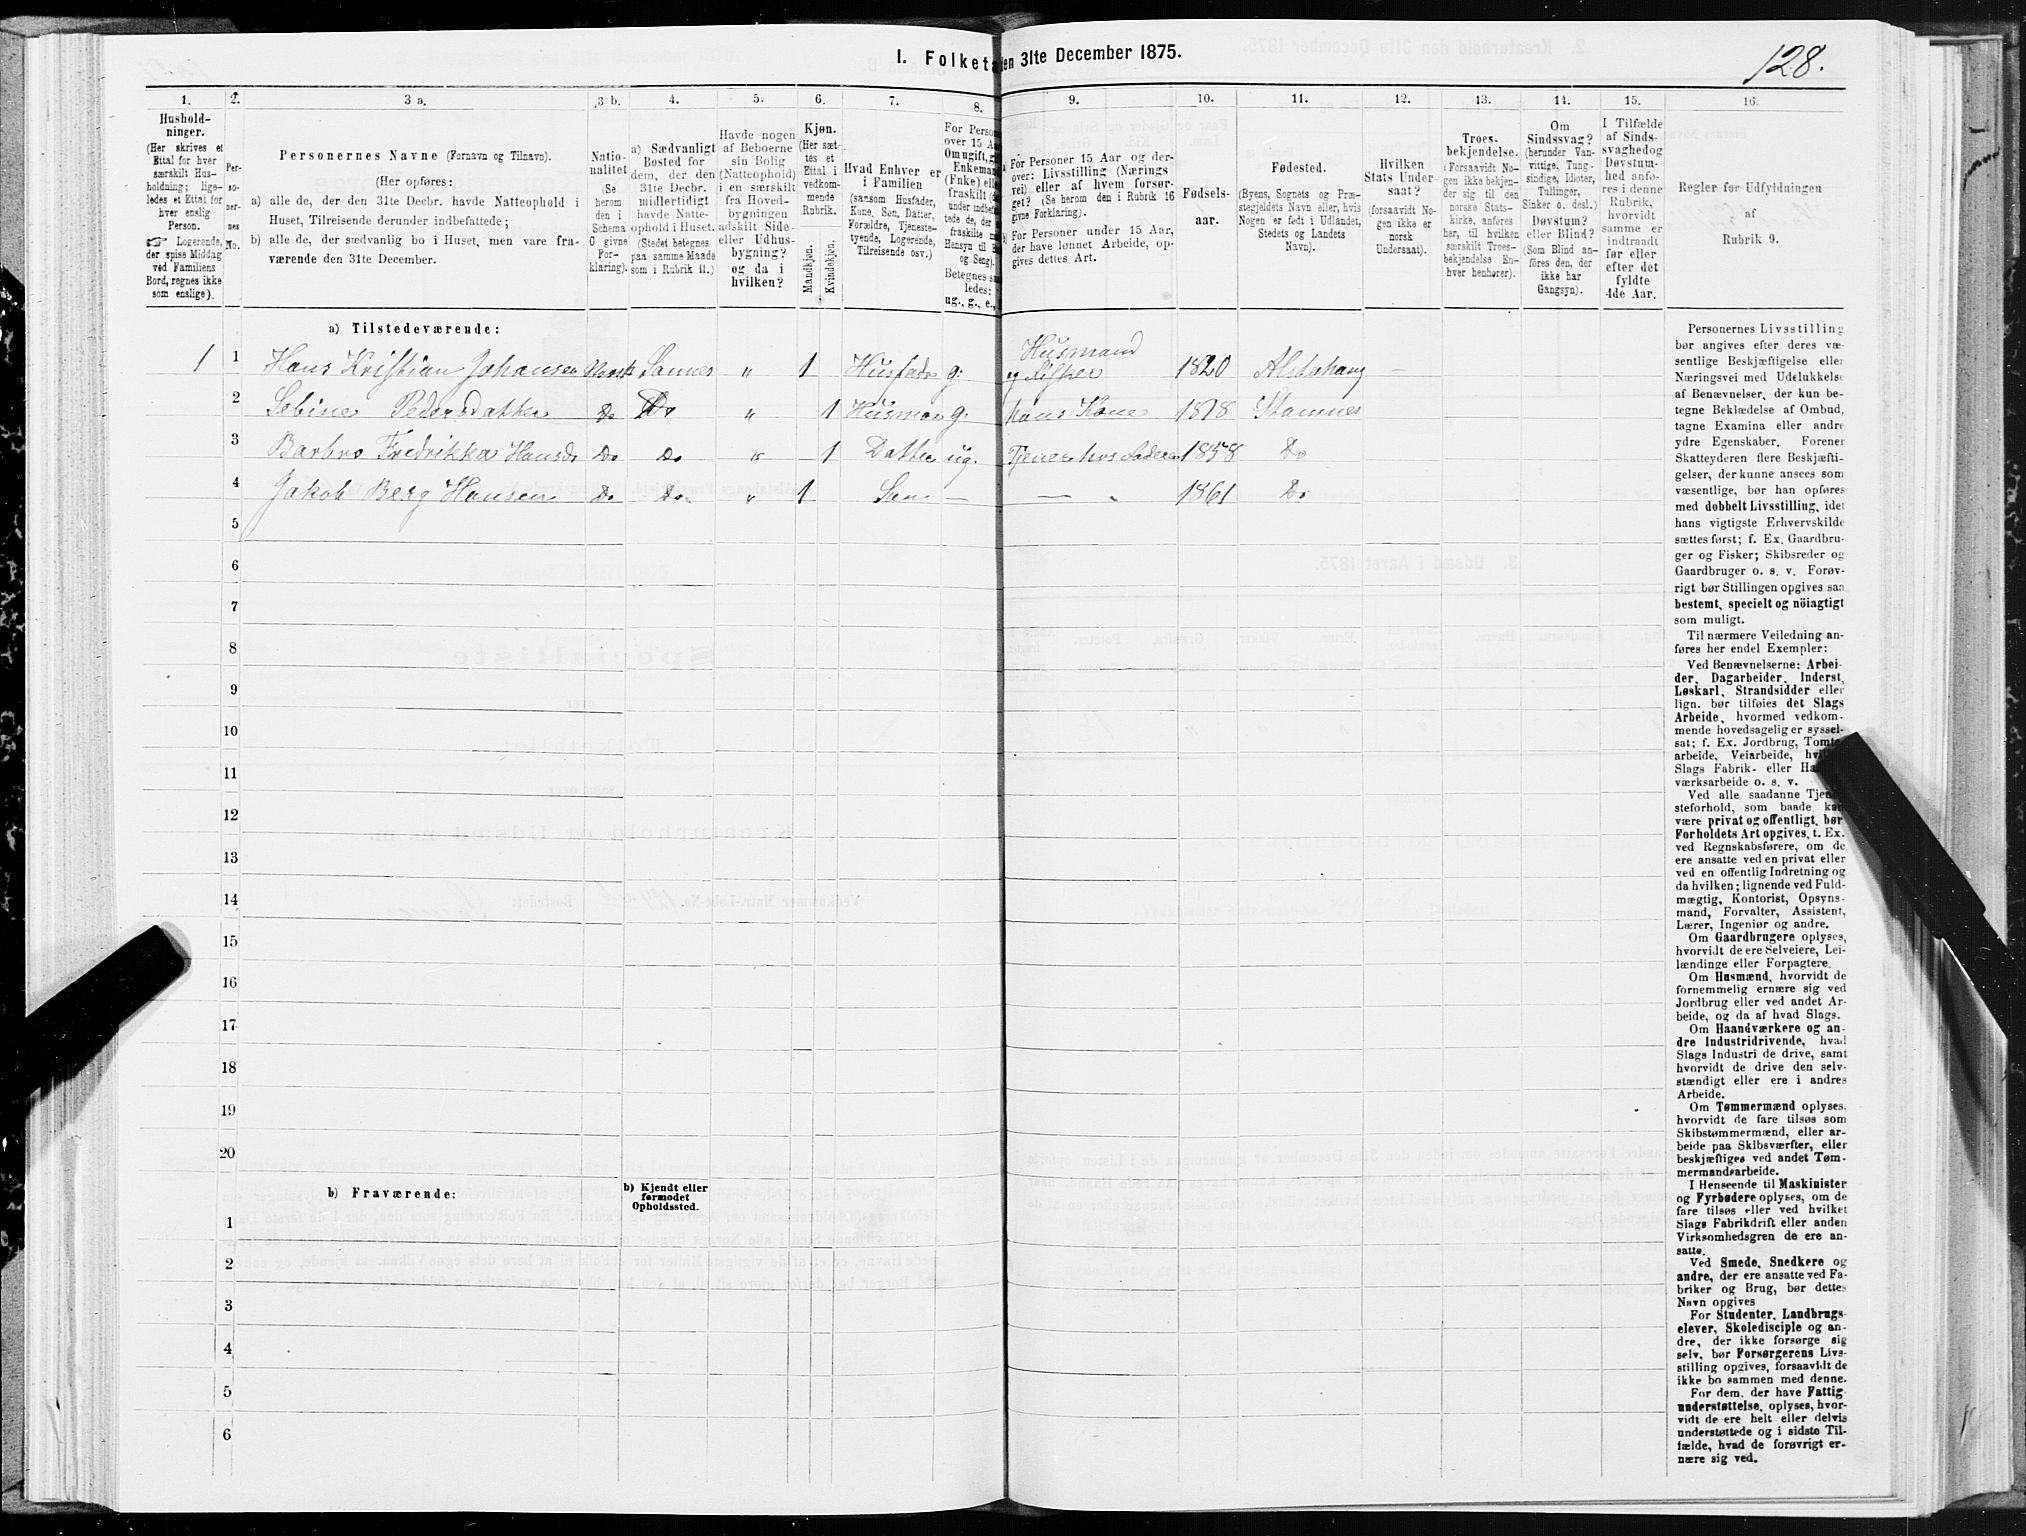 I. Folketæ
en 31te December 1875.
128.
1. 2. 3 a. 3 b. 4. 5. 6. 7. 8. 9. 10. 11. 12. 13. 14. 15. 16.
Hushold-
ninger.
(Her skrives et
Ettal for hver
særskilt Hus-
holdning; lige-
ledes et Ettal for
hver enslig
Person.
☞ Logerende,
der spise Middag
ved Familiens
Bord, regnes ikke
som enslige).
Per-
so-
ner-
nes
No.
Personernes Navne (Fornavn og Tilnavn).
(Her opføres:
a) alle de, der den 31te Decbr. havde Natteophold i
Huset, Tilreisende derunder indbefattede;
b) alle de, der sædvanlig bo i Huset, men vare fra-
værende den 31te December.
Natio-
nalitet
(Se
herom
den i
Schema
C givne
For-
klaring).
a) Sædvanligt
Bosted for
dem, der den
31te Decbr.
midlertidigt
havde Natte-
ophold i Huset.
(Stedet betegnes
paa samme Maade
som i Rubrik 11.)
Havde nogen
af Beboerne
sin Bolig
(Natteophold)
i en særskilt
fra Hoved-
bygningen
adskilt Side-
eller Udhus-
bygning?
og da i
hvilken?
Kjøn.
(Her sæt-
tes et
Ettal i
vedkom-
mende
Rubrik.
Mandkjøn.
Kvindekjøn.
Hvad Enhver er
i Familien
(sansom Husfader,
Kone, Søn, Datter,
Forældre, Tjeneste-
tyende, Logerende,
Tilreisende osv.)
For Perso
over 15 Aa
Om ugift, gi
Enkeman
(Fnke) ell
fraskilt (
under indbef
tede de, der
fraskilte m
Hensyn til B
og Seng).
Betegnes sa
ledes:
ug., g., e.,
a For Personer 15 Aar og der-
over: Livsstilling (Nærings
vei) eller af hvem forsør-
get? (Se herom den i Rubrik 16
givne Forklaring.)
b) For Personer under 15 Aar,
der have lønnet Arbeide, op-
gives dettes Art.
Fødsels-
aar.
Fødested.
(Byens, Sognets og Præ-
stegjeldets Navn eller, hvis
Nogen er født i Udlandet,
Stedets og Landets
Navn).
Hvilken
Stats Under-
saat?
(forsaavidt No-
gen ikke er
norsk
Undersaat).
Troes-
bekjendelse.
(Forsaavidt No-
gen ikke bekjen-
der sig til den
norske Stats-
kirke, anføres
her, til hvilken
særskilt Troes-
bekjendelse En-
hver henhører).
Om
Sindssvag?
(herunder Van-
vittige, Tung-
sindige, Idioter,
Tullinger,
Sinker o. desl.)
Døvstum?
eller Blind?
(Som Blind an-
føres den, der
ikke har
Gangsyn).
I Tilfælde
af Sinds-
svaghed og
Døvstum-
hed anfø-
res i denne
Rubrik,
hvorvidt
samme er
indtraadt
før eller
efter det
fyldte
4de Aar.
Regler for Udfyldningen
af
Rubrik 9.
a) Tilstedeværende:
1 1 Hans Kristian Johansen Norsk Sannes " 1 Husfader g. Husmand og Fisker 1820 Alstahaug —
2 Sebine Pedersdatter Do Do " 1 g. hans Kone Stamnes
3 Barbro Fredrikka Hansd. Do Do " 1 Datter ug. Tjener hos Faderen 1858 Do
4 Jakob Berg Hansen Do Do. " 1 Søn — — " 1861 Do
5
6
7
8
9
10
11
12
13
14
15
16
17
18
19
20
b) Fraværende:
b) Kjendt eller
formodet
Opholdssted.
1
2
3
4
5
6
Personernes Livsstilling
bør angives efter deres væ-
sentlige Beskjæftigelse eller
Næringsvei med Udelukkelse
af Benævnelser, der kun be-
tegne Beklædelse af Ombud,
tagne Examina eller andre
ydre Egenskaber. Forener
Skatteyderen flere Beskjæfti-
gelser, der kunne ansees som
væsentlige, bør han opføres
med dobbelt Livsstilling, idet
hans vigtigste Erhvervskilde
sættes først; f. Ex. Gaardbru-
ger og Fisker; Skibsreder og
Gaardbruger o. s. v. Forøv-
rigt bør Stillingen opgives saa
bestemt, specielt og nöiagtigt
som muligt.
Til nærmere Veiledning an-
føres her endel Exempler:
Ved Benævnelserne: Arbei-
der, Dagarbeider, Inderst,
Løskarl, Strandsidder eller
lign. bør tilføies det Slags
Arbeide, hvormed vedkom-
mende hovedsagelig er syssel-
sat; f. Ex. Jordbrug, Tomte-
arbeide, Veiarbeide, hvilket
Slags Fabrik- eller Haand-
værksarbeide o. s. v.
Ved alle saadanne Tjene-
steforhold, som baade kan
være privat og offentligt, bør
Forholdets Art opgives, t. Ex.
ved Regnskabsførere, om de
ere ansatte ved en privat eller
ved en offentlig Indretning og
da hvilken; lignende ved Fuld-
mægtig, Kontorist, Opsyns-
mand, Forvalter, Assistent,
Lærer, Ingeniør og andre.
Om Gaardbrugere oplyses,
hvorvidt de ere Selveiere, Lei-
lændinge eller Forpagtere.
Om Husmænd, hvorvidt de
fornemmelig ernære sig ved
Jordbrug eller ved andet Ar-
beide, og da af hvad Slags.
Om Haandværkere og an-
dre Industridrivende, hvad
Slags Industri de drive, samt
hvorvidt de drive den selv-
stændigt eller ere i andres
Arbeide.
Om Tømmermænd oplyses,
hvorvidt de fare tilsøs som
Skibstømmermænd, eller ar-
beide paa Skibsværfter, eller
beskjæftiges ved andet Tøm-
mermandsarbeide.
I Henseende til Maskinister
og Fyrbødere oplyses, om de
fare tilsøs eller ved hvilket
Slags Fabrikdrift eller anden
Virksomhedsgren de ere an-
satte.
Ved Smede, Snedkere og
andre, der ere ansatte ved Fa-
briker og Brug, bør dettes
Navn opgives
For Studenter, Landbrugs-
elever, Skoledisciple og an-
dre, der ikke forsørge sig
selv, bør Forsørgerens Livs-
stilling opgives, forsaavidt de
ikke bo sammen med denne.
For dem, der have Fattig
understøttelse, oplyses, hvor-
vidt de ere helt eller delvis
understøttede og i sidste Til-
fælde, hvad de forøvrigt er-
nære sig ved.